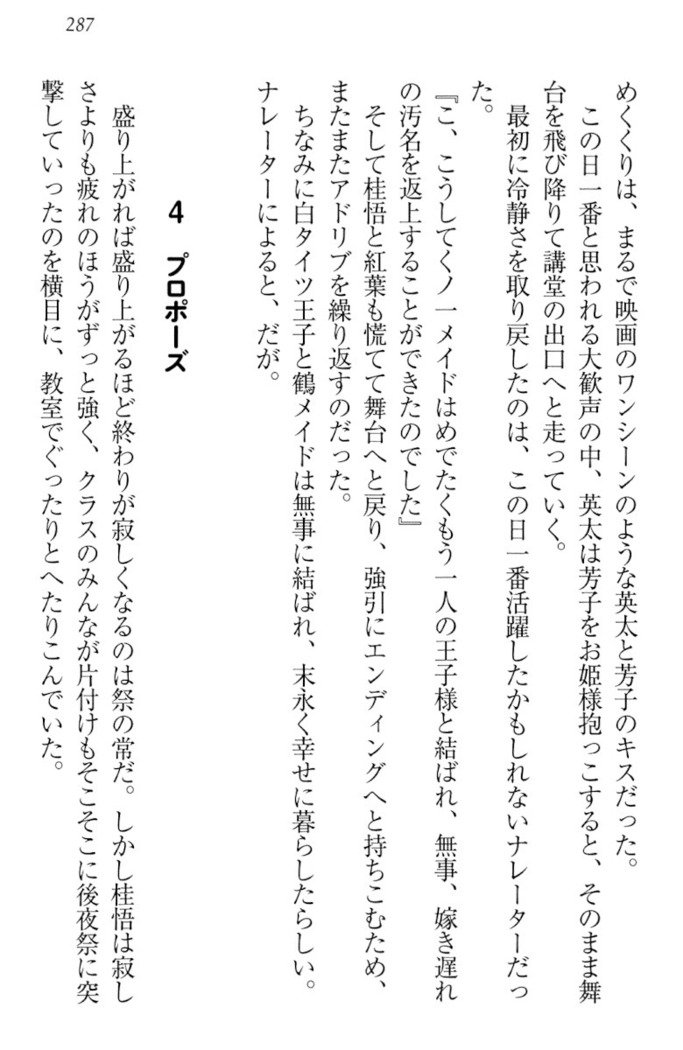 287
めくくりは、まるで映画のワンシーンのような英太と芳子のキスだった。
　この日一番と思われる大歓声の中、英太は芳子をお姫様抱っこすると、そのまま舞
台を飛び降りて講堂の出口へと走っていく。
　最初に冷静さを取り戻したのは、この日一番活躍したかもしれないナレーターだっ
た。
『こ、こうしてくノ一メイドはめでたくもう一人の王子様と結ばれ、無事、嫁き遅れ
の汚名を返上することができたのでした』
　そして桂悟と紅葉も慌てて舞台へと戻り、強引にエンディングへと持ちこむため、
またまたアドリブを繰り返すのだった。
　ちなみに白タイツ王子と鶴メイドは無事に結ばれ、末永く幸せに暮らしたらしい。
ナレーターによると、だが。
4　プロポーズ
　盛り上がれば盛り上がるほど終わりが寂しくなるのは祭の常だ。しかし桂悟は寂し
さよりも疲れのほうがずっと強く、クラスのみんなが片付けもそこそこに後夜祭に突
撃していったのを横目に、教室でぐったりとへたりこんでいた。